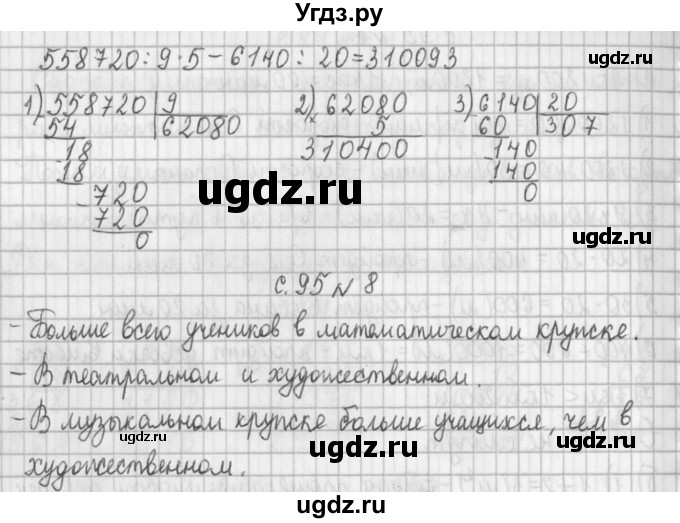 Угдз.ру
558720:9·5-6140:20=310093
1) 558720 | 9 2) 62080 3) 6140 | 20
54 62080 × 5 60 307
18 310400 140
18 140
720 0
720
0
с.95 № 8
- Больше всего учеников в математическом крупске.
- В театральном и художественном.
- В музыкальном крупске больше учащихся, чем в
художественном.
ugdz.ru
ugdz.ru
ugdz.ru
ugdz.ru
ugdz.ru
ugdz.ru
ugdz.ru
ugdz.ru
ugdz.ru
ugdz.ru
ugdz.ru